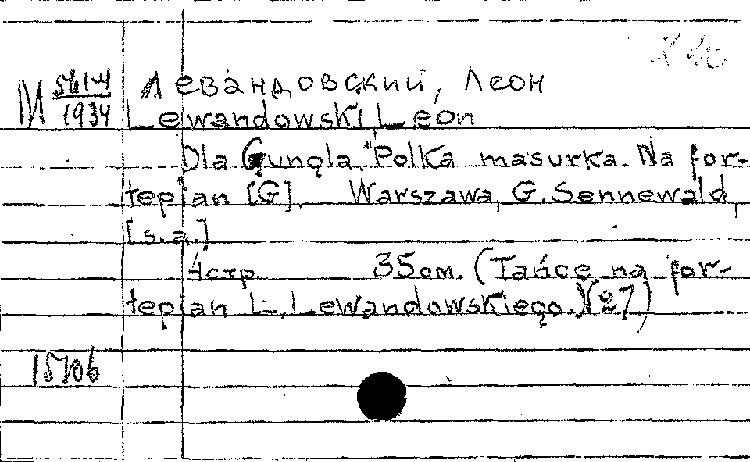 Левандовский, Леон
M 561-4/1934
Lewandowski, Leon
Dla Gungla. Polka masurka. Na for-
tepian [G]. Warszawa, G. Sennewald,
[s.a.]
4 стр. 35 см. (Tańce na for-
tepian L. Lewandowskiego. №27)
15706